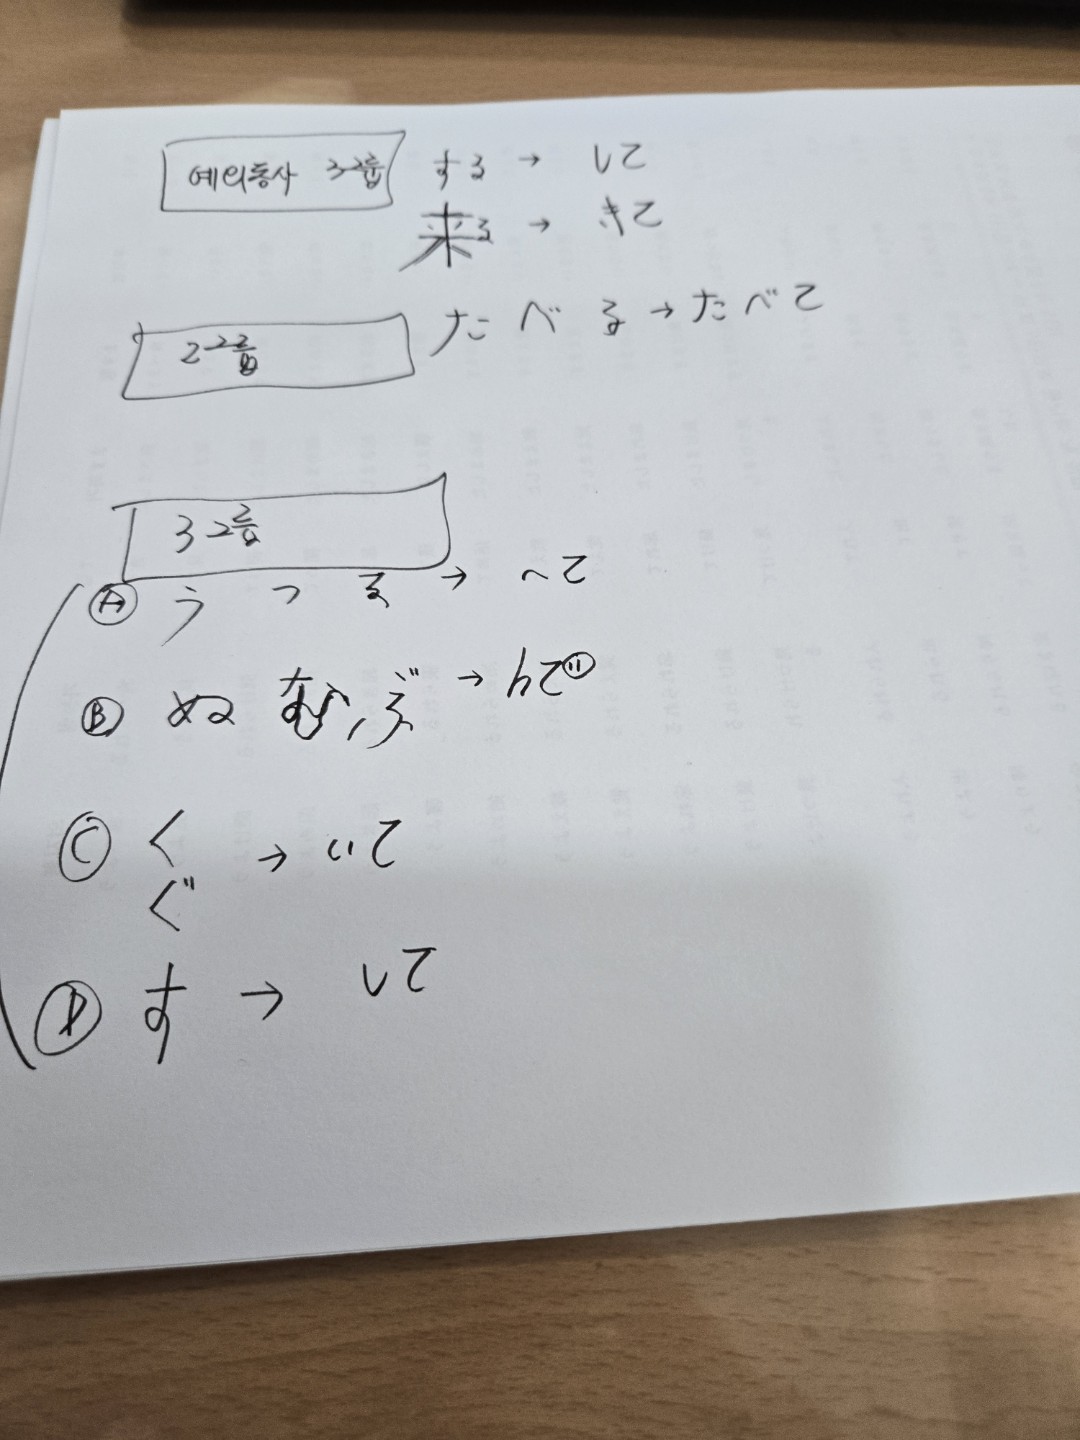 예외동사 3그룹 する → して
来る → きて
2그룹 たべる → たべて
3그룹
Ⓐ う つ る → って
Ⓑ ぬ む ぶ → んで
Ⓒ く → いて
ぐ
Ⓓ す → して